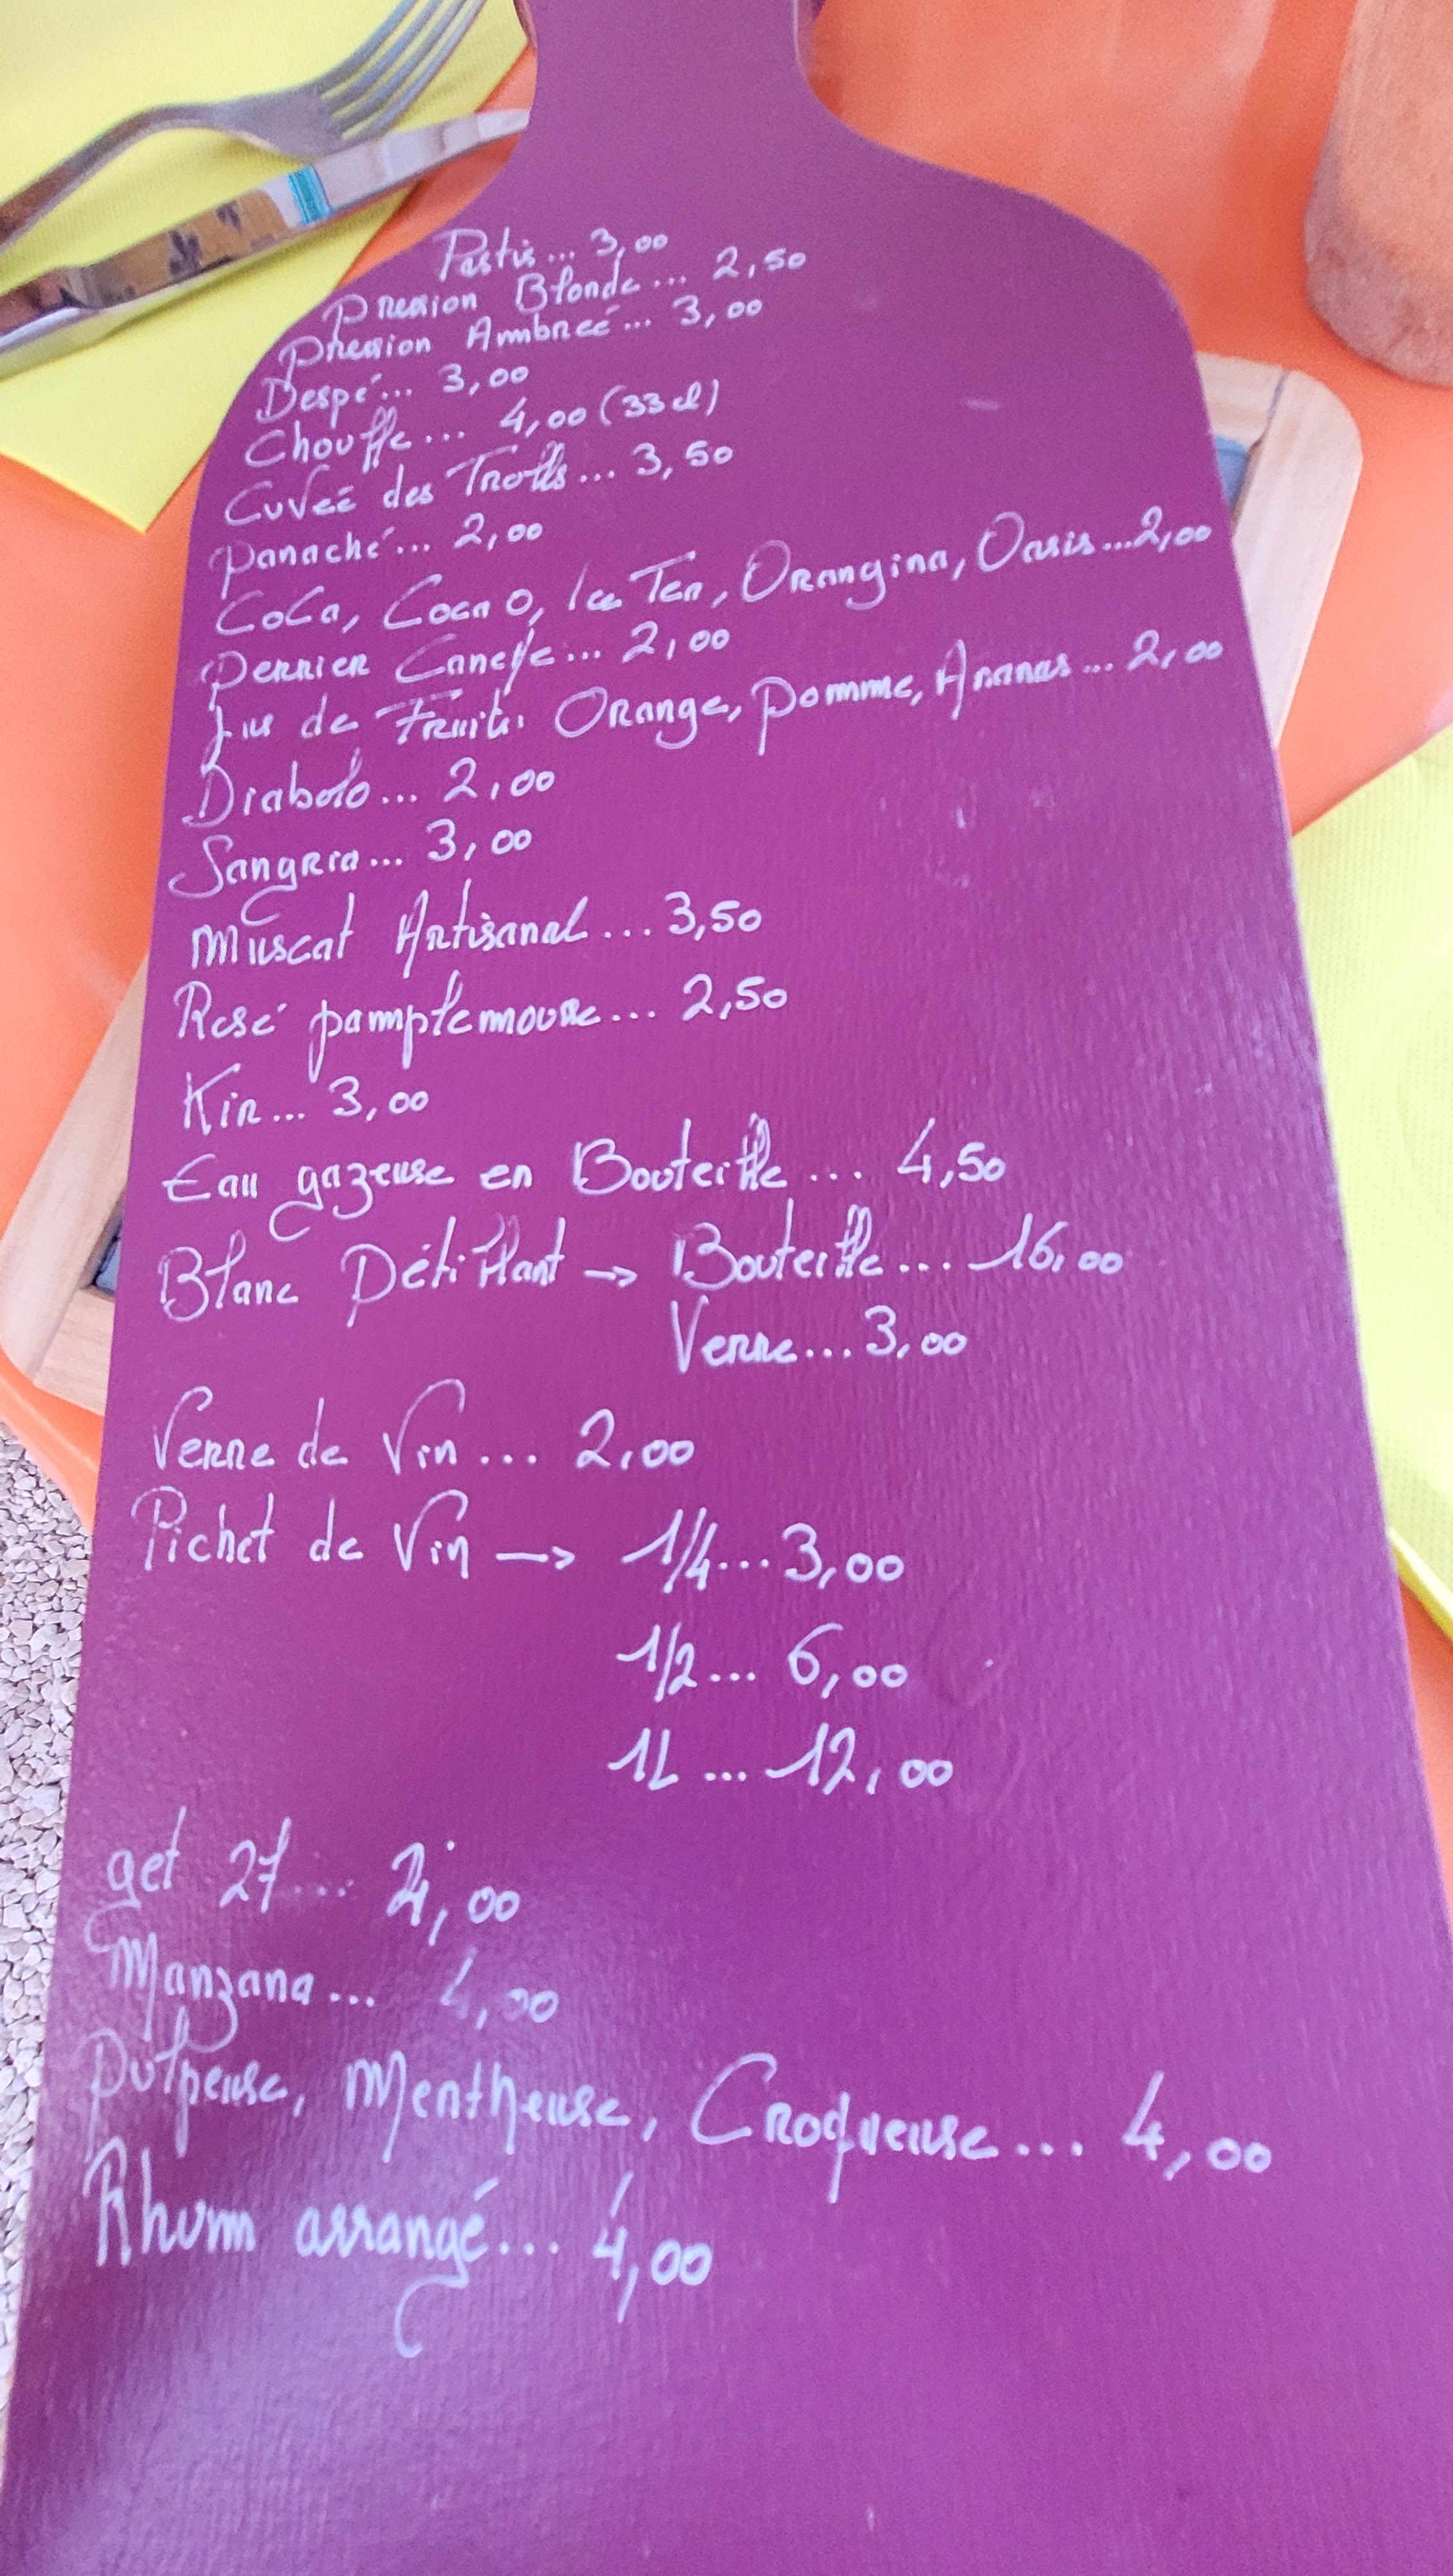 Pastis... 3,00
Pression Blonde... 2,50
Pression Ambreé... 3,00
Despé... 3,00
Chouffe... 4,00 (33cl)
Cuveé des Trolls... 3,50
Panaché... 2,00
Coca, Coca O, Ice Tea, Orangina, Oasis...2,00
Perrier Canette... 2,00
Jus de Fruits Orange, Pomme, Ananas... 2,00
Diabolo... 2,00
Sangria... 3,00
Muscat Artisanal... 3,50
Rosé pamplemousse... 2,50
Kir... 3,00
Eau gazeuse en Bouteille... 4,50
Blanc Pétillant → Bouteille... 16,00
Verre... 3,00
Verre de Vin... 2,00
Pichet de Vin → 1/4... 3,00
1/2... 6,00
1L... 12,00
get 27... ,00
Manzana... 4,00
Pulpeuse, Mentheuse, Croqueuse... 4,00
Rhum arrangé... 4,00